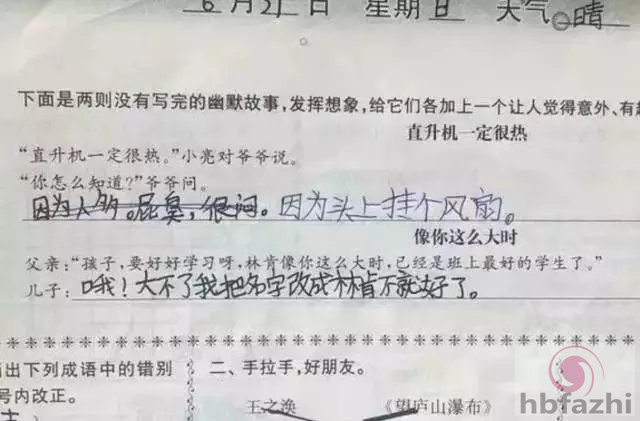 6 月 21 日 星期 日 天气 晴
下面是两则没有写完的幽默故事,发挥想象,给它们各加上一个让人觉得意外、有趣
直升机一定很热
“直升机一定很热。”小亮对爷爷说。
“你怎么知道?”爷爷问。
因为人多。屁臭,很闷。因为头上挂个风扇。
像你这么大时
父亲:“孩子,要好好学习呀,林肯像你这么大时,已经是班上最好的学生了。”
儿子:哦!大不了我把名字改成林肯不就好了。
出下列成语中的错别
二、手拉手,好朋友。
号内改正。
王之涣 《望庐山瀑布》
hbfazhi